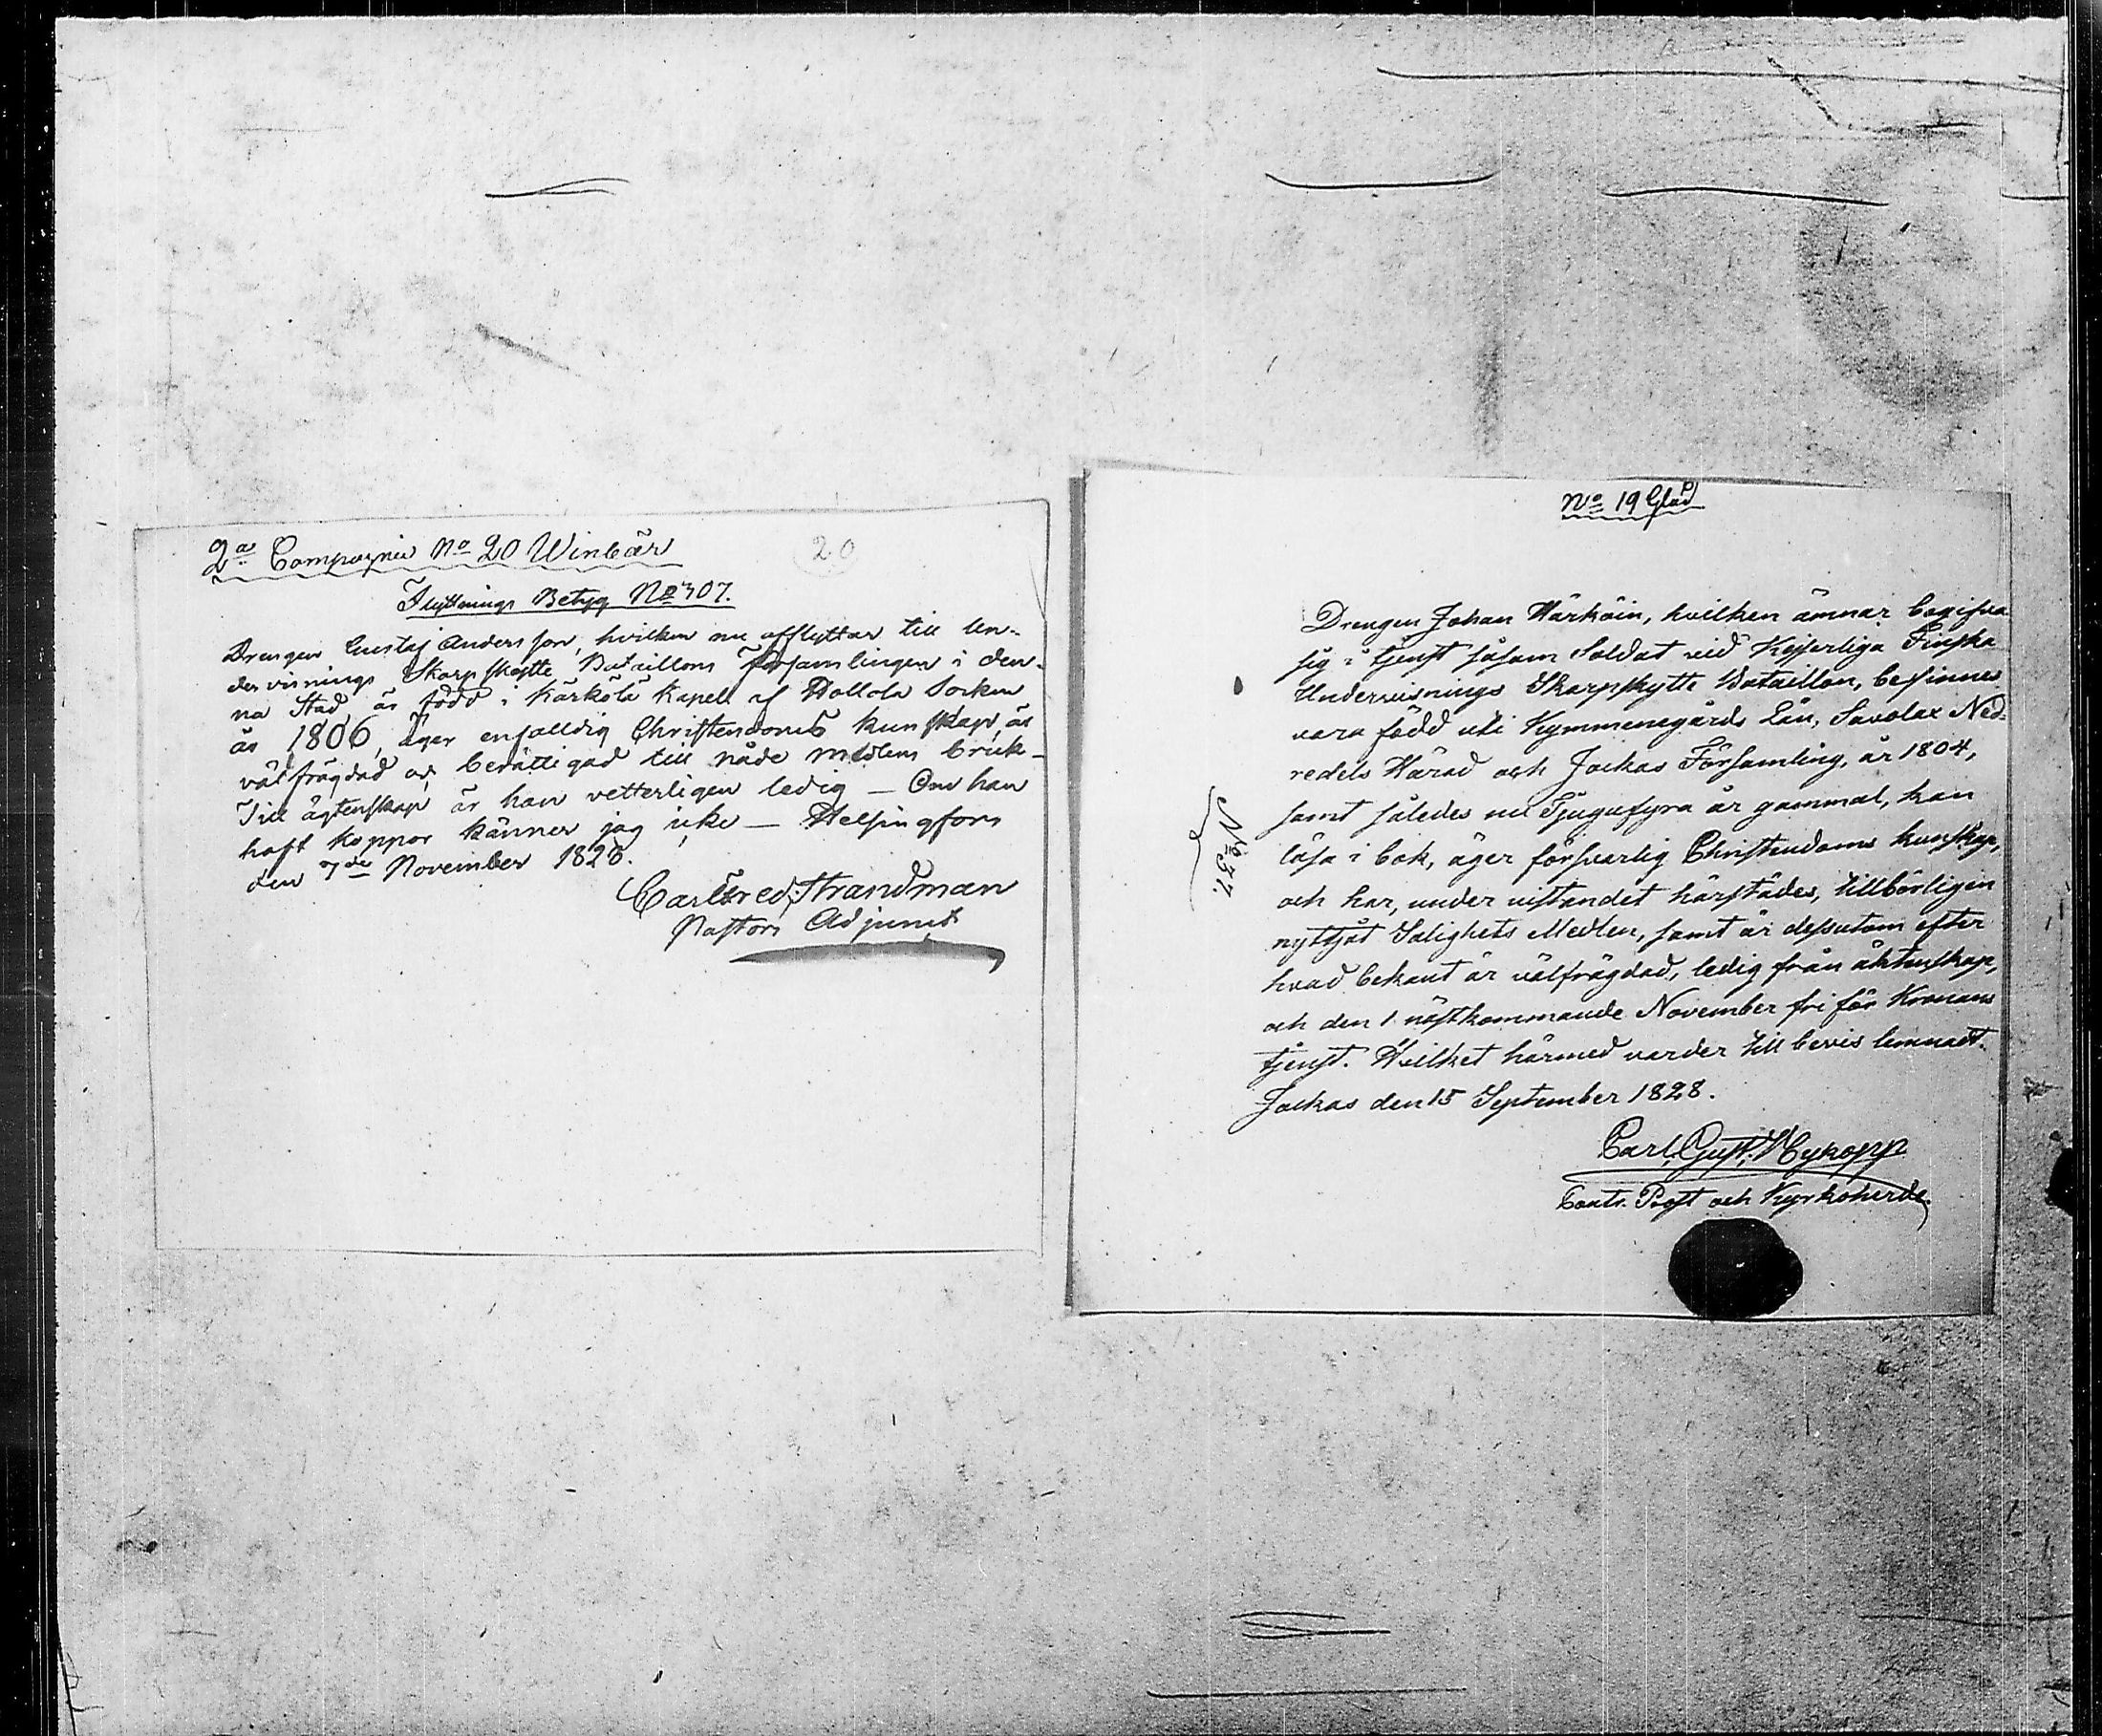 2a Compagnie No 20 Winbär
20
Flyttnings Betyg No 307.
Drengen Gustaf Andersson, hvilken nu afflyttar till Un-
dervisnings Skarpskytte Bataillons församlingen i den-
na Stad är född i Kärkölä Kapell af Hollola Socken
år 1806, äger enfalldig Christendoms kunskap, är
välfrägdad och berättigad till nåde medlens bruk –
Till ägtenskap är han vetterligen ledig – Om han
haft koppor känner jag icke – Helsingfors
den 7de November 1828.
Carl Fred. Strandman
Pastors Adjunct
No 19 Glad
No 37.
Drengen Johan Härköin, hvilken ämnar begifva
sig i tjenst såsom Soldat vid Kejserliga Finska
Undervisnings Skarpskytte Bataillon, befinnes
vara född uti Kymmenegårds Län, Savolax Ned-
redels Härad och Jockas Församling, år 1804,
samt således nu Tjugufyra år gammal, kan
läsa i bok, äger försvarlig Christendoms kunskap,
och har, under vistandet härstädes, tillbörligen
nyttjat Salighets Medlen, samt är dessutom efter
hvad bekant är välfrägdad, ledig från äktenskap,
och den 1 nästkommande November fri för Kronans
tjenst. Hvilket härmed varder till bevis lemnadt.
Jockas den 15 September 1828.
Carl Gust. Wykopp
Contr. Prost och Kyrkoherde.